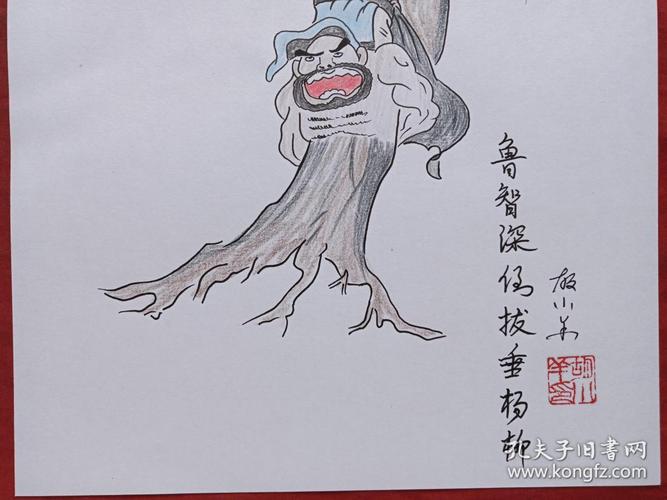 鲁智深倒拔垂杨柳
孔夫子旧书网
www.kongfz.com